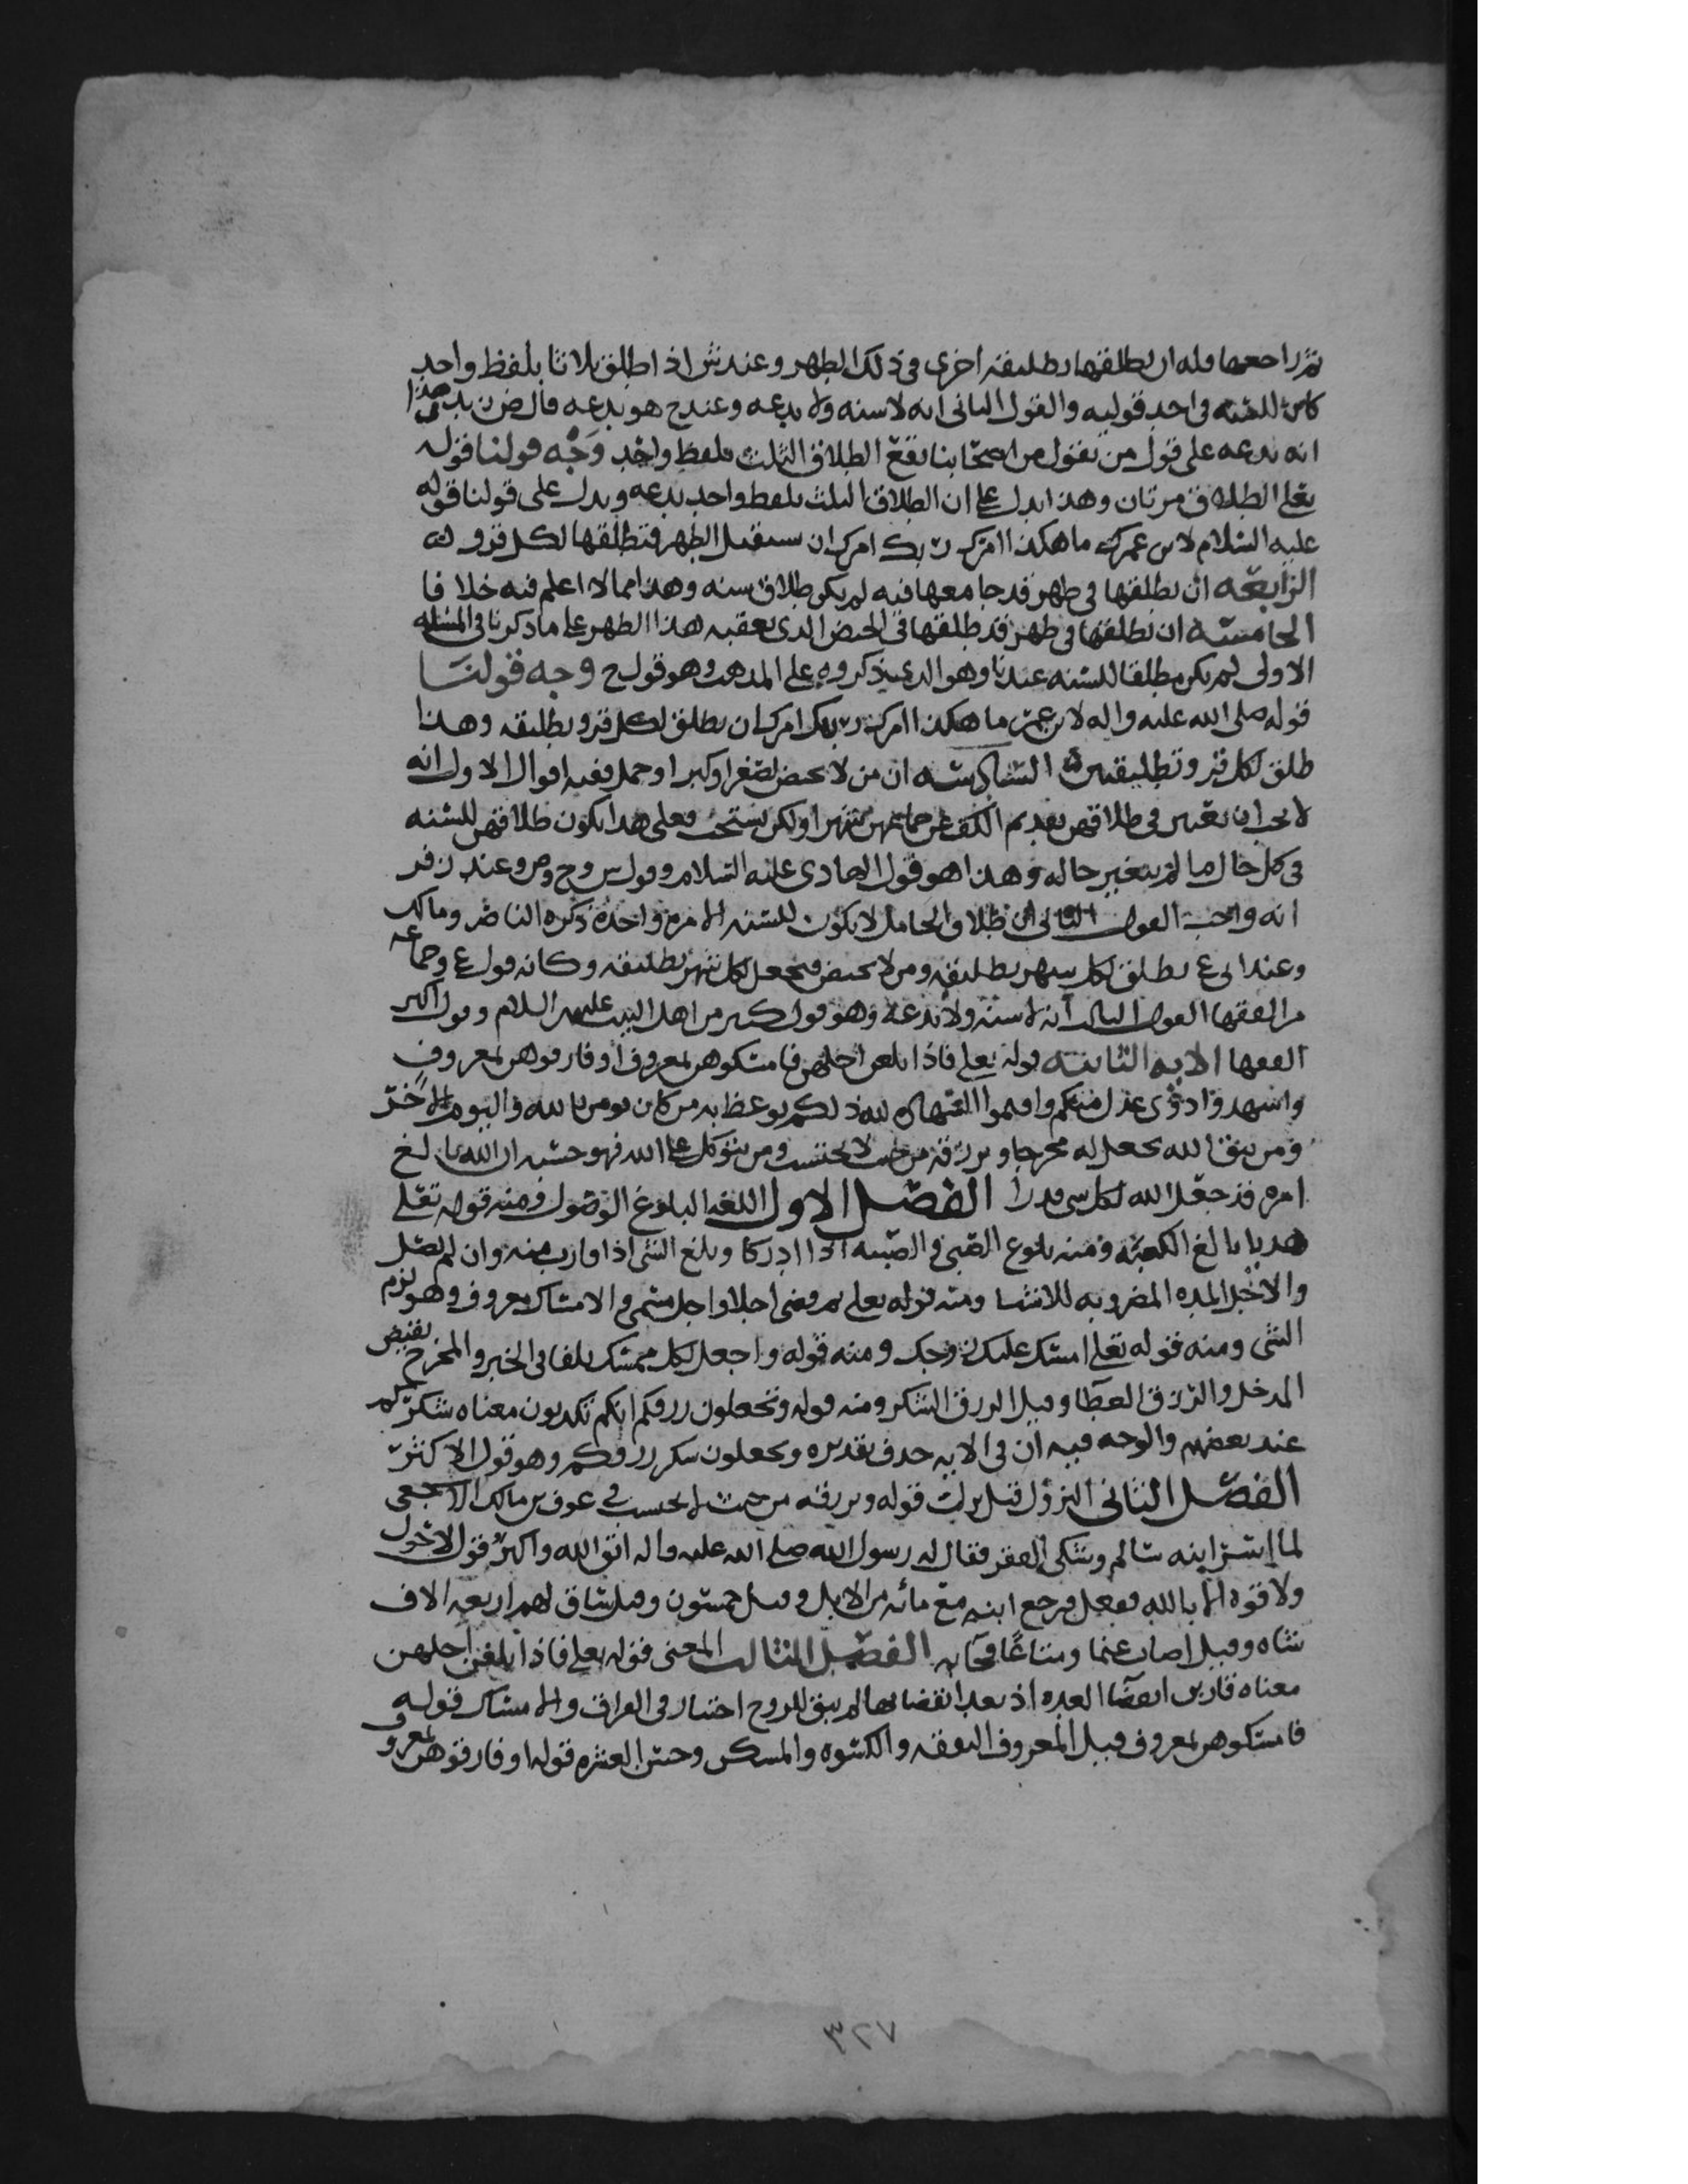 ثم راجعها وله ان يطلقها تطليقه اخرى في ذلك الطهر وعند ش اذا طلق ثلاثا بلفظ واحد
كان للسنه في احد قوليه والقول الثاني انه لا سنه ولا بدعه وعند ح هو بدعه قال ض زيد هذا
انه بدعه على قول من يقول من اصحابنا يقع الطلاق الثلث بلفظ واحد وَجْه قولنا قوله
تعلى الطلاق مرتان وهذا يدل على ان الطلاق الثلث بلفظ واحد بدعه ويدل على قولنا قوله
عليه السلام لابن عمر ما هكذا امرك ربك امرك ان تستقبل الطهر فتطلقها لكل قرو
الرابعه ان يطلقها في طهر قد جامعها فيه لم يكن طلاق سنه وهذا مما لا اعلم فيه خلافا
الخامسه ان يطلقها في طهر قد طلقها في الحيض الذي يعقبه هذا الطهر على ما ذكرنا في المسله
الاولى لم يكن مطلقا للسنه عندنا وهو الذي يذكروه على المذهب وهو قول ح وجه قولنا
قوله صلى الله عليه واله لابن عمر ما هكذا امرك ربك امرك ان تطلق لكل قرو تطليقه وهذا
طلق لكل قرو تطليقتين السادسه ان من لا تحيض لصغر او كبر او حمل ففيه اقوال الاول انه
لا يجب ان يعتبر في طلاقهن تقديم الكف عن جماعهن شهرا ولكن يستحب فعلى هذا يكون طلاقهن للسنه
في كل حال ما لم يتغير حاله وهذا هو قول الهادي عليه السلام وقول س وح وص وعند زفر
انه واجب القول الثاني ان طلاق الحامل لا يكون للسنه الا مره واحده ذكره الناصر ومالك
وعند ابي ع يطلق لكل شهر تطليقه ومن لا تحيض فيجعل لكل شهر تطليقه وكانه قول ع وجماعه
من الفقها القول الثالث انه لا سنه ولا بدعه وهو قول كثير من اهل البيت عليهم السلام وقول اكثر
الفقها الايه الثانيه قوله تعلى فاذا بلغن اجلهن فامسكوهن بمعروف او فارقوهن بمعروف
واشهدوا ذوى عدل منكم واقيموا الشهاده لله ذلكم يوعظ به من كان يومن بالله واليوم الاخر
ومن يتق الله يجعل له مخرجا ويرزقه من حيث لا يحتسب ومن يتوكل على الله فهو حسبه ان الله بالغ
امره قد جعل الله لكل شي قدرا الفصل الاول اللغه البلوغ الوصول ومنه قوله تعلى
هديا بالغ الكعبه ومنه بلوغ الصبي والصبيه اذا ادركا وبلغ الشي اذا قارب منه وان لم يصل
والاجل المده المضروبه للاشيا ومنه قوله تعلى ثم قضى اجلا واجل مسمى والامساك بمعروف وهو لزم
الشي ومنه قوله تعلى امسك عليك زوجك ومنه قوله واجعل لكل ممسك تلفا في الخبر والمخرج نقيض
المدخل والرزق العطا وقيل الرزق الشكر ومنه قوله وتجعلون رزقكم انكم تكذبون معناه شكركم
عند بعضهم والوجه فيه ان في الايه حذف تقديره وتجعلون شكر رزقكم وهو قول الاكثر
الفصل الثاني النزول قيل نزلت قوله ويرزقه من حيث لا يحتسب في عوف بن مالك الاشجعي
لما اسر ابنه سالم وشكى الفقر فقال له رسول الله صلى الله عليه واله اتق الله واكثر قول لا حول
ولا قوه الا بالله ففعل فرجع ابنه مع مائه من الابل وقيل خمسون وقيل ساق لهم اربعه الاف
شاه وقيل اصاب غنما ومتاعًا فجا به الفصل الثالث المعنى قوله تعلى فاذا بلغن اجلهن
معناه قاربن انقضا العده اذ بعد انقضائها لم يبق للزوج اختيار في الفراق والامساك قوله
فامسكوهن بمعروف قيل المعروف النفقه والكسوه والمسكن وحسن العشره قوله او فارقوهن بمعروف
٣٢٧